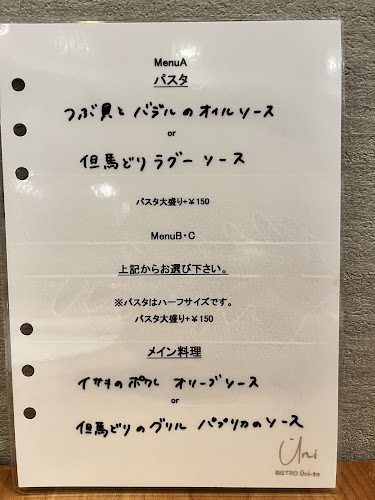 MenuA
パスタ
つぶ貝と バデルのオイルソース
or
但馬どりラグー ソース
パスタ大盛り+￥150
MenuB・C
上記からお選び下さい。
※パスタはハーフサイズです。
パスタ大盛り+￥150
メイン料理
イサキのポワレ オリーブソース
or
但馬どりのグリル パプリカのソース
Uni
BISTRO Uni-to